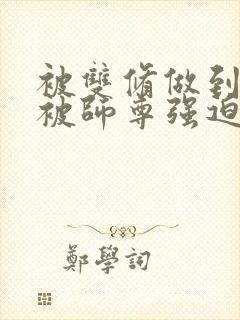 被雙脩做到
被師尊强迫
鄭學詞